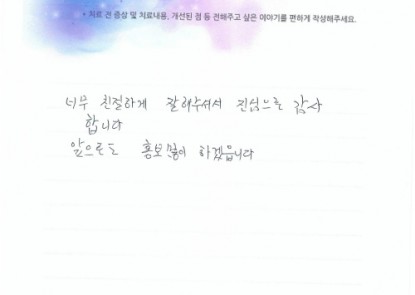 • 치료 전 증상 및 치료내용, 개선된 점 등 전해주고 싶은 이야기를 편하게 작성해주세요.
너무 친절하게 잘해주셔서 진심으로 감사
합니다
앞으로도 홍보많이 하겠읍니다